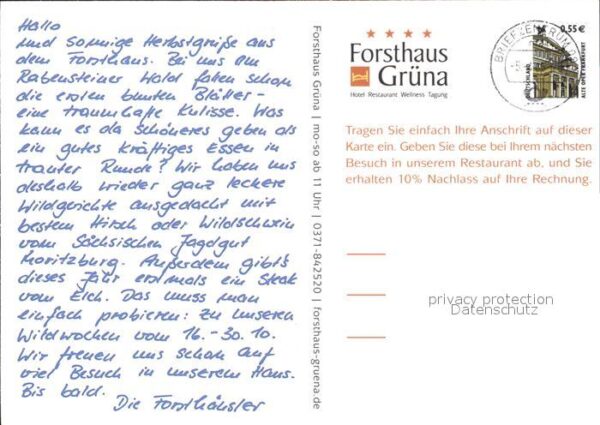 Hallo
und sonnige Herbstgrüße aus
dem Forsthaus. Bei uns am
Rabensteiner Wald fallen schon
die ersten bunten Blätter -
eine traumhafte Kulisse. Was
kann es da Schöneres geben als
ein gutes kräftiges Essen in
trauter Runde? Wir haben uns
deshalb wieder ganz leckere
Wildgerichte ausgedacht mit
bestem Hirsch oder Wildschwein
vom Sächsischen Jagdgut
Moritzburg. Außerdem gibt's
dieses Jahr erstmals ein Steak
vom Elch. Das muss man
einfach probieren: zu unseren
Wildwochen vom 16.-30.10.
Wir freuen uns schon auf
viel Besuch in unserem Haus.
Bis bald.
Die Forsthäusler
Forsthaus Grüna | mo-so ab 11 Uhr | 0371-842520 | forsthaus-gruena.de
Forsthaus
Grüna
Hotel Restaurant Wellness Tagung
BRIEFZENTRUM
0,55 €
DEUTSCHLAND
ALTE OPER FRANKFURT
Tragen Sie einfach Ihre Anschrift auf dieser
Karte ein. Geben Sie diese bei Ihrem nächsten
Besuch in unserem Restaurant ab, und Sie
erhalten 10% Nachlass auf Ihre Rechnung.
privacy protection
Datenschutz